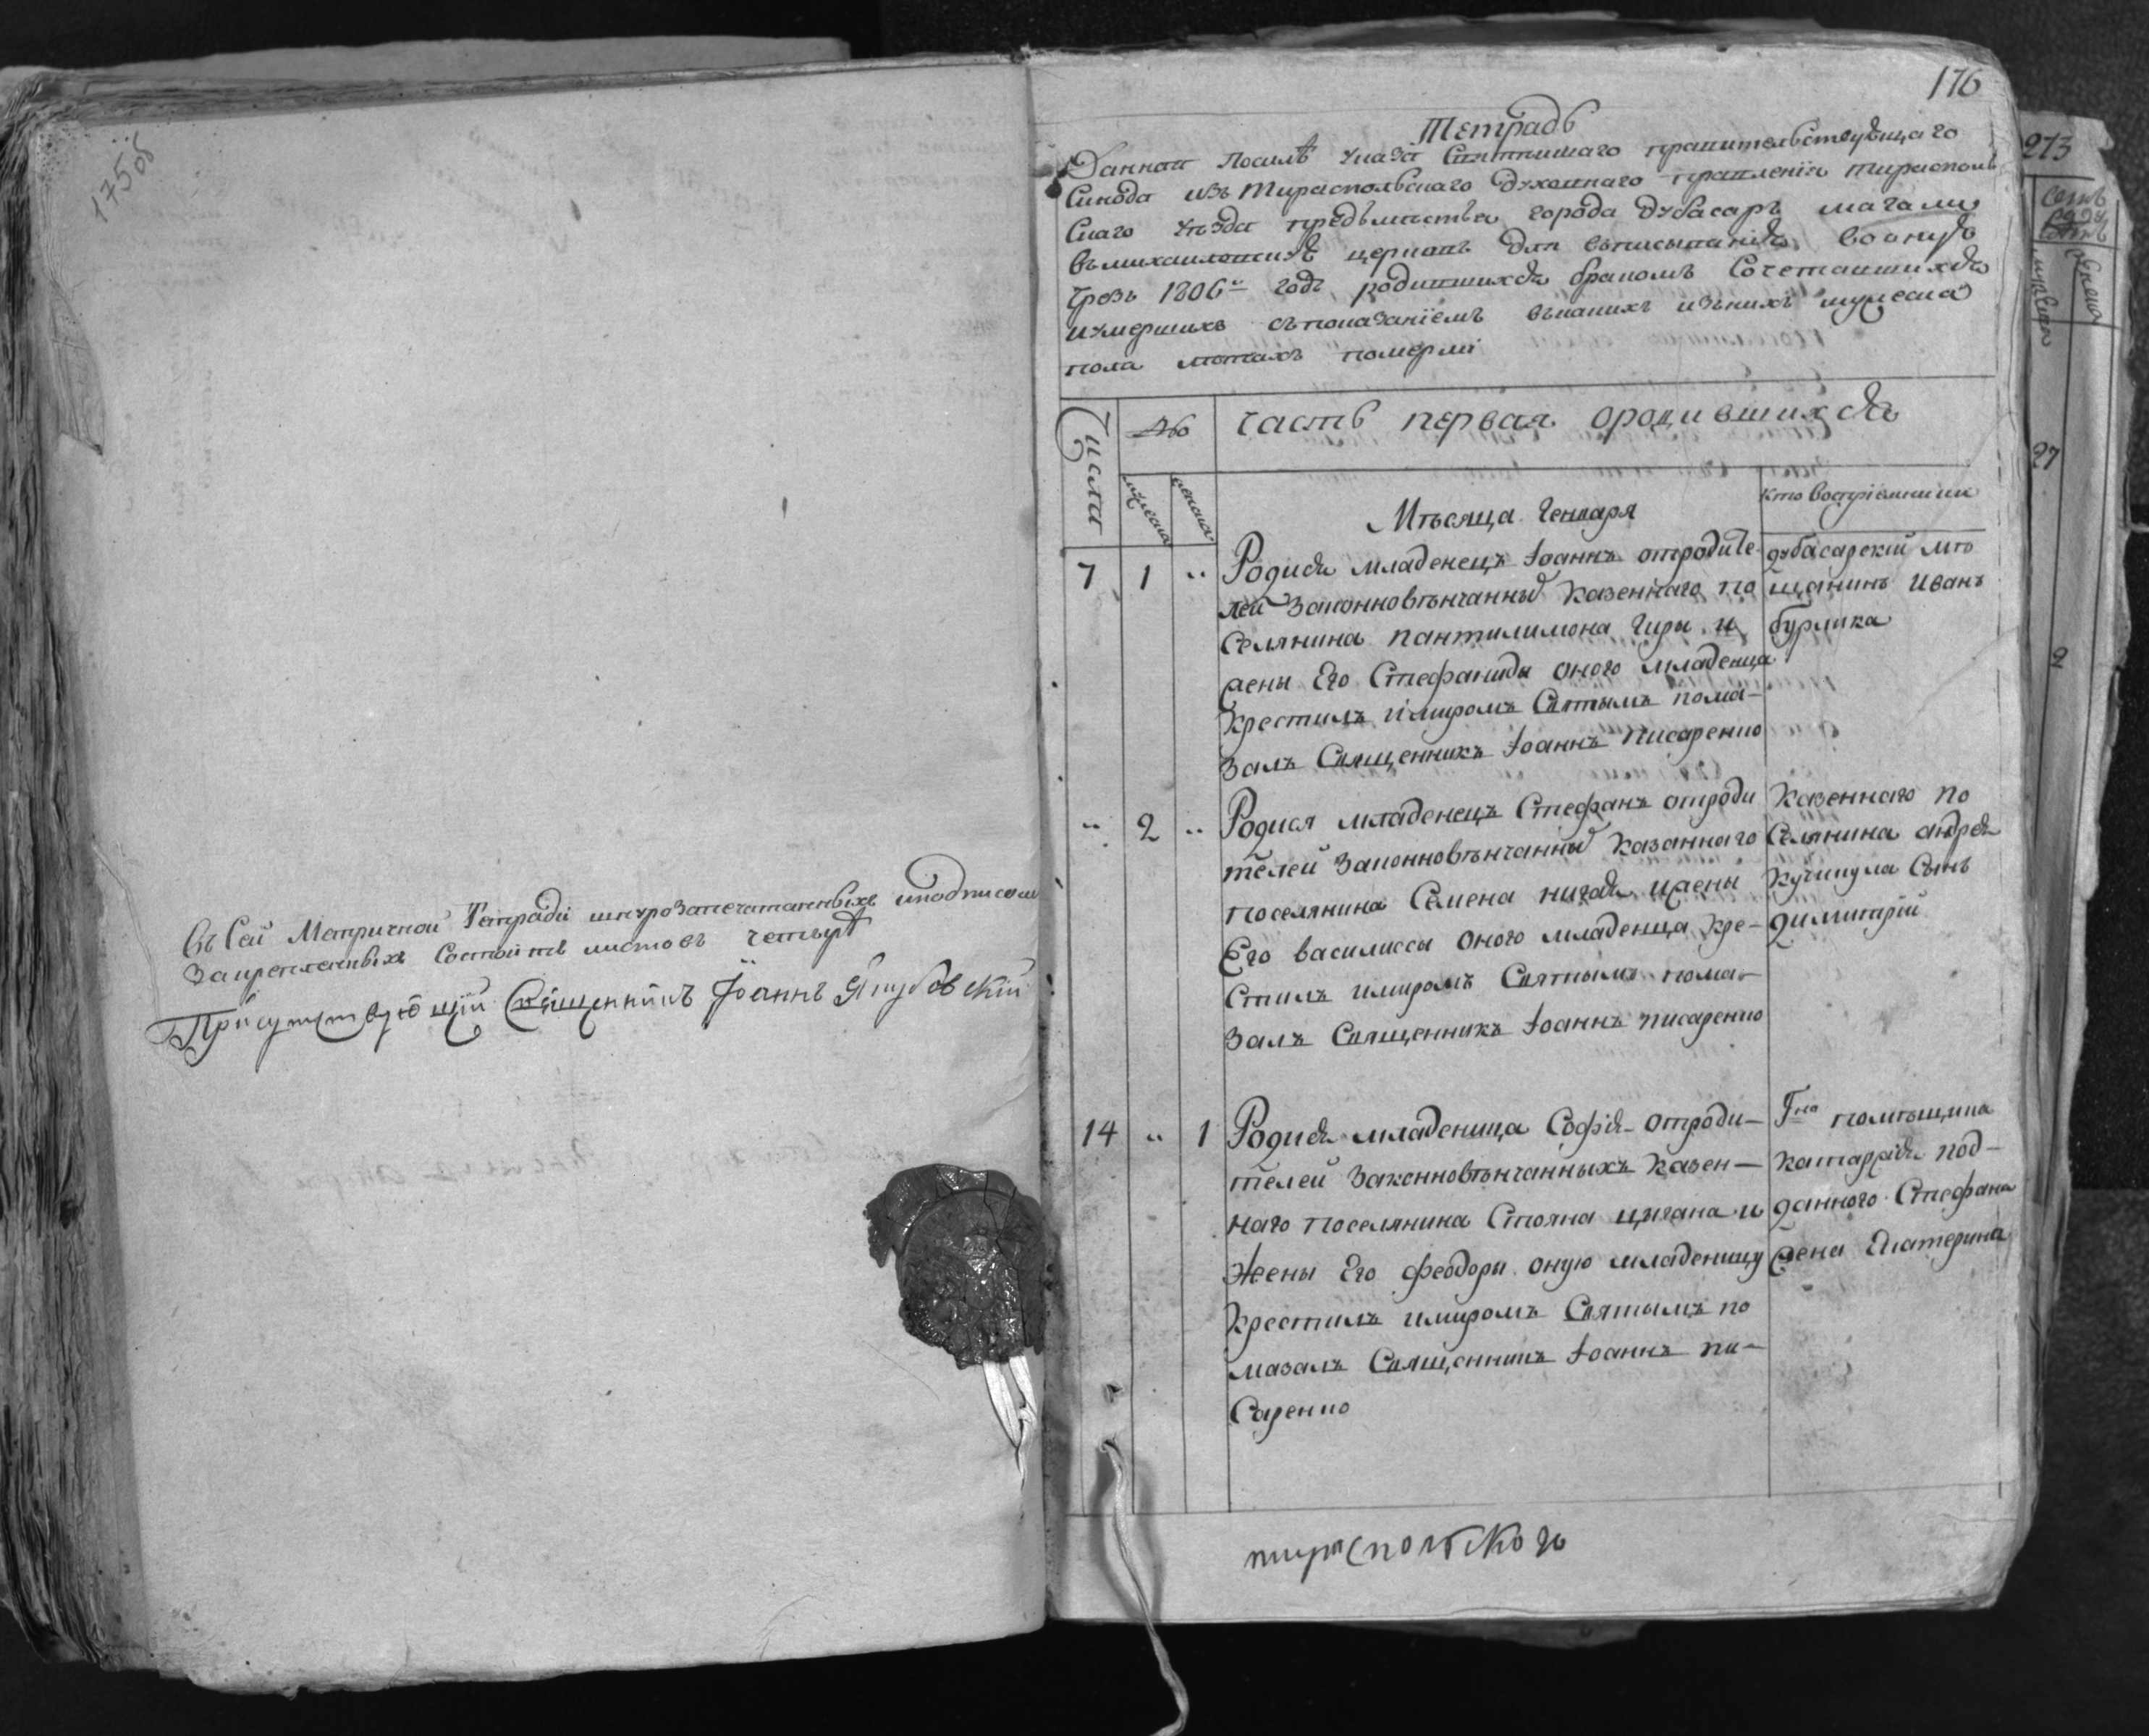 175об
Въ сей Метричной Тетради шнурозапечатанныхъ иподписомъ
Закрепленныхъ Состоитъ листовъ четыре
Присутствующий Священникъ Іоаннъ Якубовский
176
Тетрадь
Данная Посилѣ указа Святѣйшаго правительствующаго
Синода изъ Тираспольскаго духовнаго правления тирасполь
Скаго уѣзда предьмѣстья города Дубасаръ магали
въмихаиловскую церковь для вьписыванія вооную
Чрезъ 1806й годъ родившихся бракомъ Сочетавшихся
иумершихъ съпоказаніемъ вькакихъ изьнихъ мужеска
пола лѣтахъ померли
Числа
Мужеска
женска
часть первая ородившихся
Мѣсяца Генваря
кто восприемники
7 1 " Родися младенецъ Іоаннъ отродите
лей Законновѣнчанных Казеннаго по
Селянина пантилимона Гиры и
жены Его Стефаниды оного младенца
Крестилъ имиромъ Святымъ пома-
залъ Священникъ Іоаннъ Писаренко
дубасарский мѣ
щанинъ Иванъ
бурлика
" 2 " Родися младенецъ Стефанъ отроди
телей Законновѣнчанных Казаннаго
поселянина Семена нигая ижены
Его василиссы оного младенца кре-
стилъ имиромъ Святымъ пома-
залъ Священникъ Іоаннъ писаренко
Казеннаго по
Селянина андрея
Кучинула Сынъ
димитрій
14 " 1 Родися младеница Софія отроди-
телей Законновѣнчанныхъ Казен-
наго поселянина Стояна цигана и
Жены Его феодоры оную младеницу
Крестилъ имиромъ Святымъ по
мазалъ Священникъ Іоаннъ пи-
Саренко
Гна помѣщика
катаржія под-
данного Стефана
жена Екатерина
тираспольского
273
27
2